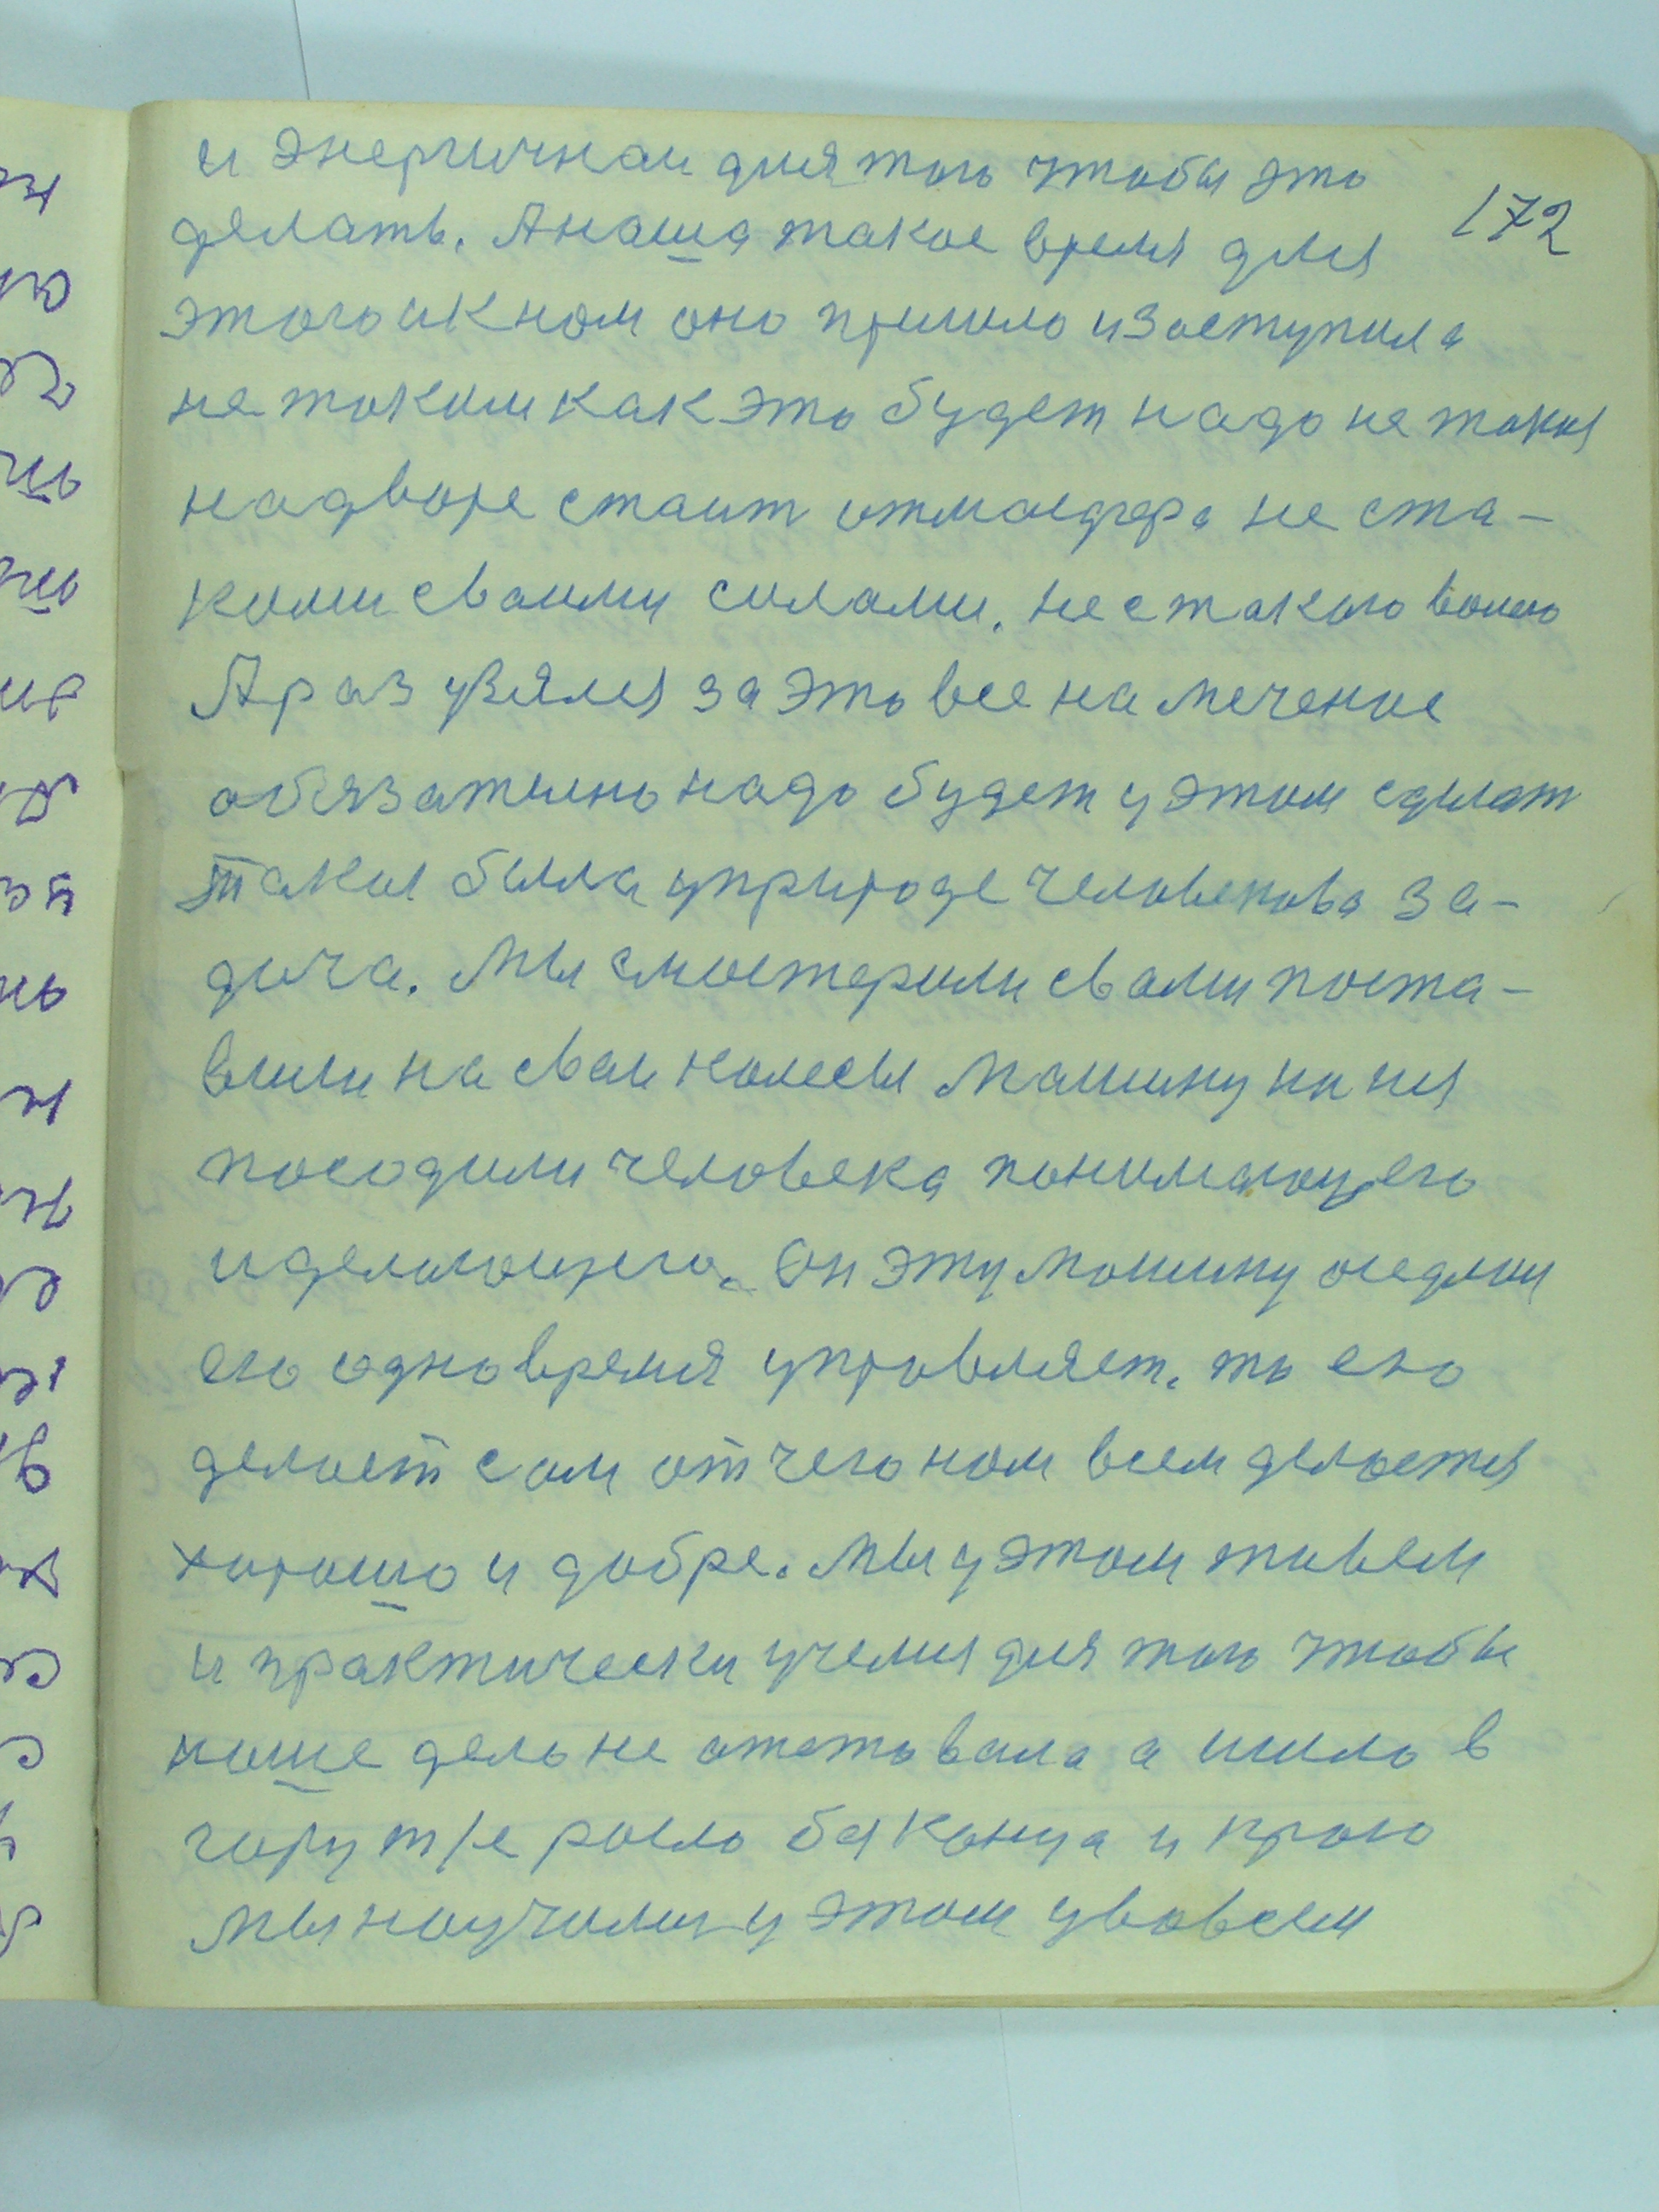 и энергичнаи для того чтобы это
172
делать. А наша такое время для
этого и к нам оно пришло и заступила
не такои как это будет надо не такия
на дворе стаит атмасфера не с та-
коми своими силами. не с такого волею
А раз узялся за это все намеченое
обязательно надо будет у этом сделат
такая была у природе человекова за-
дача. Мы смостерили сваши поста-
вили на сваи колесы машину на ния
посадили человека понимающего
и делающего. Он эту машину оседлал
его одно время управляет. то его
делает сам от чего нам всем делается
хорошо и добре. Мы у этом живем
и практически учемся для того чтобы
наше дело не атставала а ишло в
гору т/е росло без конца и краю
Мы научилися у этом у во всем